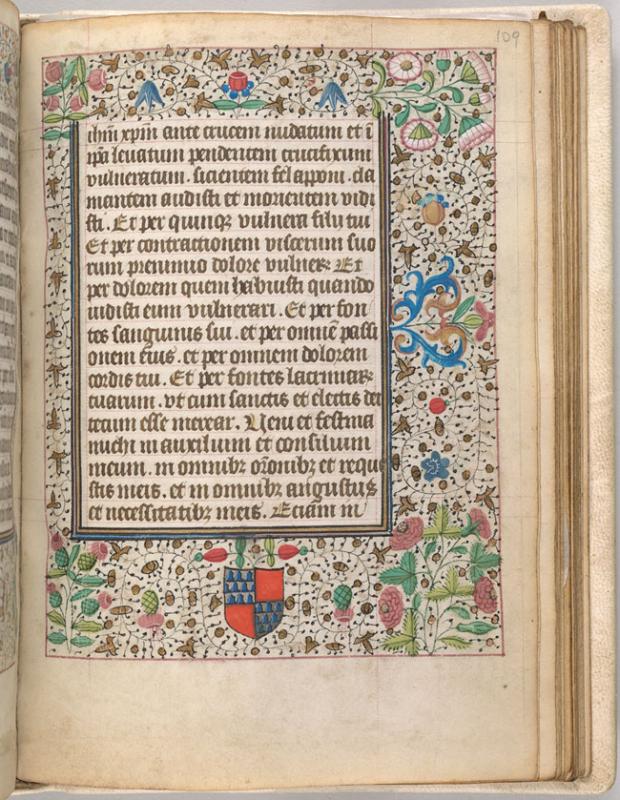 109
ihm̄ xp̄m ante crucem nudatum et ī
ip̄a leuatum pendentem crucifixum
vulneratum. sicientem fel apponi. cla
mantem audisti et morientem vidi
sti. Et per quinqꝫ vulnera filij tui
Et per contractionem viscerum suo
rum pre nimio dolore vulneꝝ Et
per dolorem quem habuisti quando
uidisti eum vulnerari. Et per fon
tes sanguinis sui. et per omnē passi
onem eius. et per omnem dolorem
cordis tui. Et per fontes lacrimaꝝ
tuarum. vt cum sanctis et electis dei
tecum esse merear. Ueni et festina
michi in auxilium et consilium
meum. in omnibꝫ or̄onibꝫ et reque
stis meis. et in omnibꝫ angustijs
et necessitatibꝫ meis. Eciam in